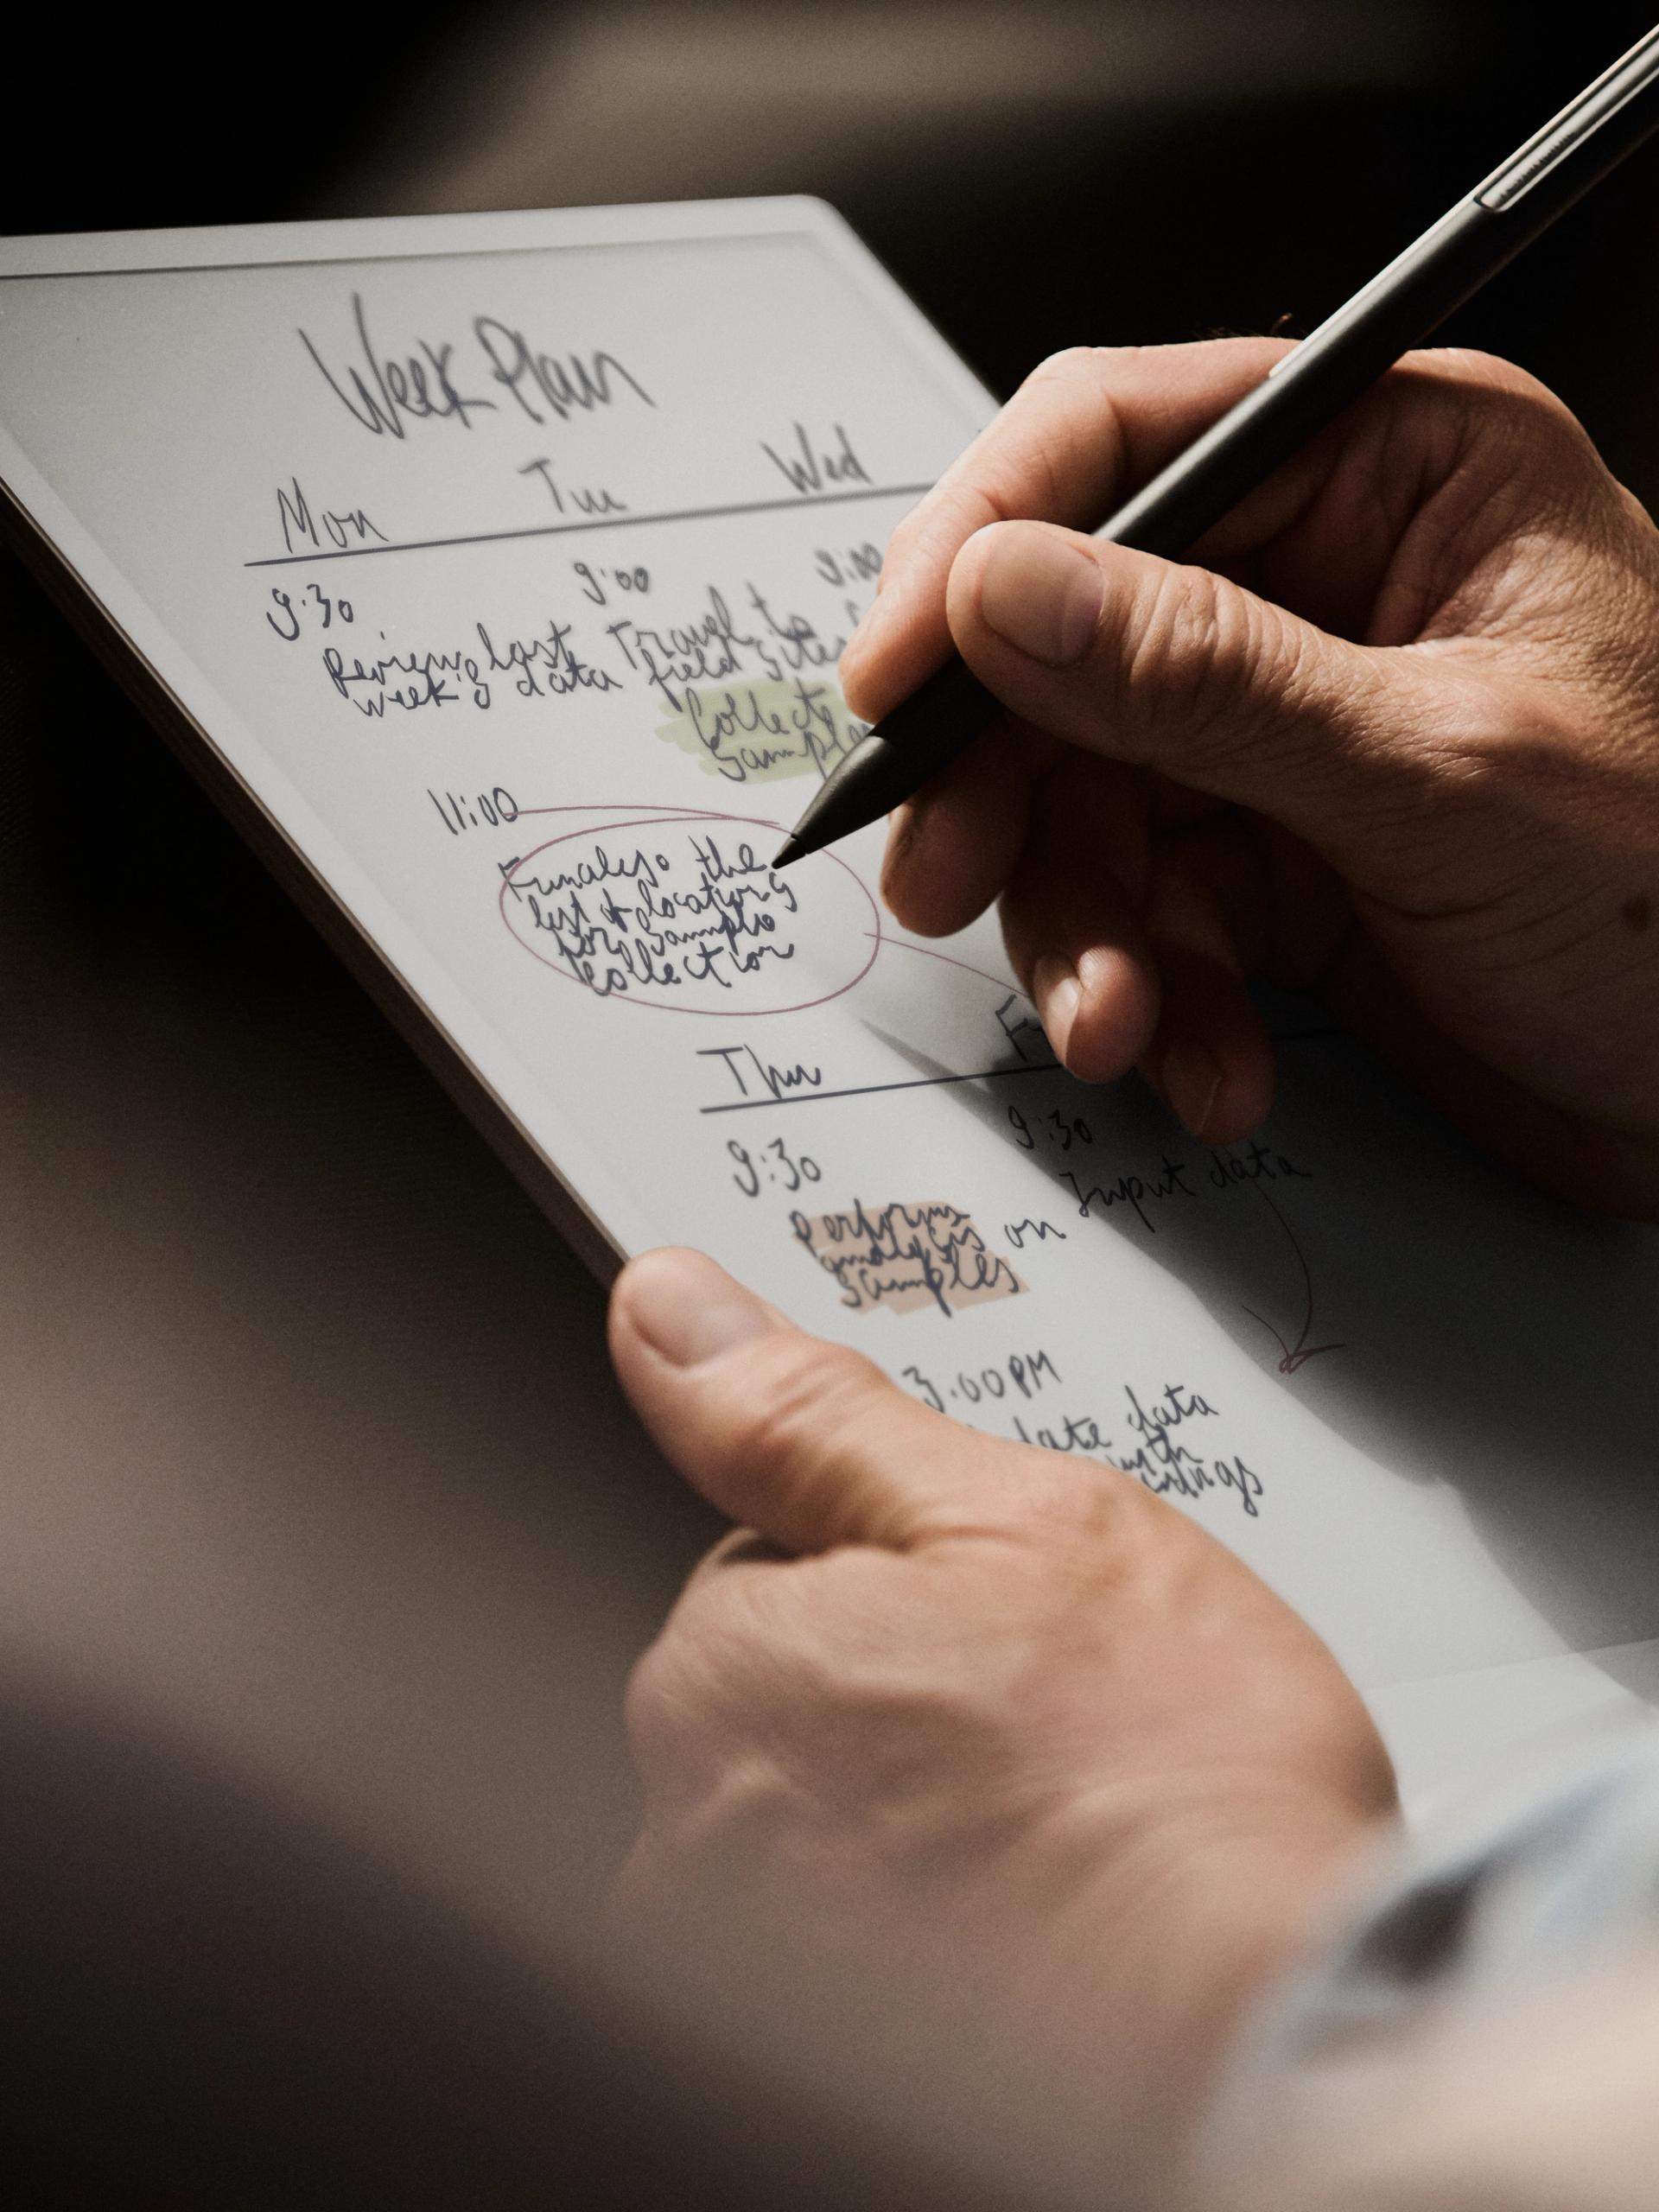 Week Plan
Mon Tue Wed
9:30
Review last
week's data
11:00
Finalise the
list of locations
for sample
collection
9:00
Travel to
field sites
Collect
samples
9:00
Thu
9:30
Perform
analysis on
samples
3:00 PM
data
with
9:30
Input data